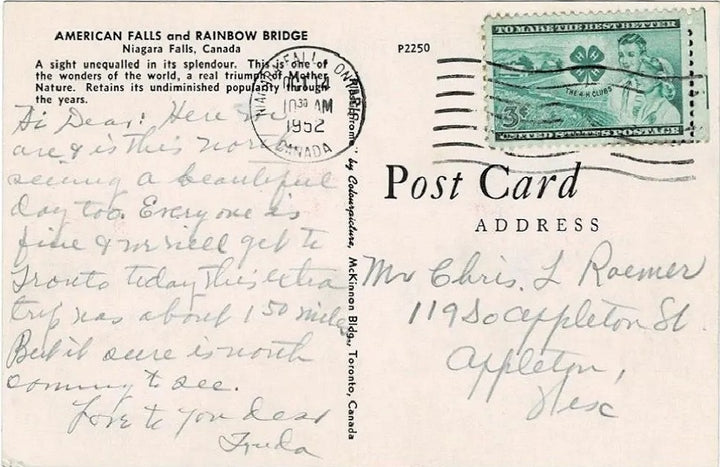 AMERICAN FALLS and RAINBOW BRIDGE
Niagara Falls, Canada
A sight unequalled in its splendour. This is one of
the wonders of the world, a real triumph of Mother
Nature. Retains its undiminished popularity through
the years.
P2250
NIAGARA FALLS ONTARIO
OCT 14
10 30 AM
1952
CANADA
TO MAKE THE BEST BETTER
THE 4-H CLUBS
3¢
UNITED STATES POSTAGE
by Colourpicture, McKinnon Bldg., Toronto, Canada
Post Card
ADDRESS
Hi Dear: Here we
are & is this north
seeing a beautiful
day too. Everyone is
fine & we will get to
Tronto today this extra
trip was about 150 miles
But it sure is worth
coming to see.
Love to you dear
Freda
Mr Chris. L Roemer
119 So Appleton St.
Appleton,
Wisc